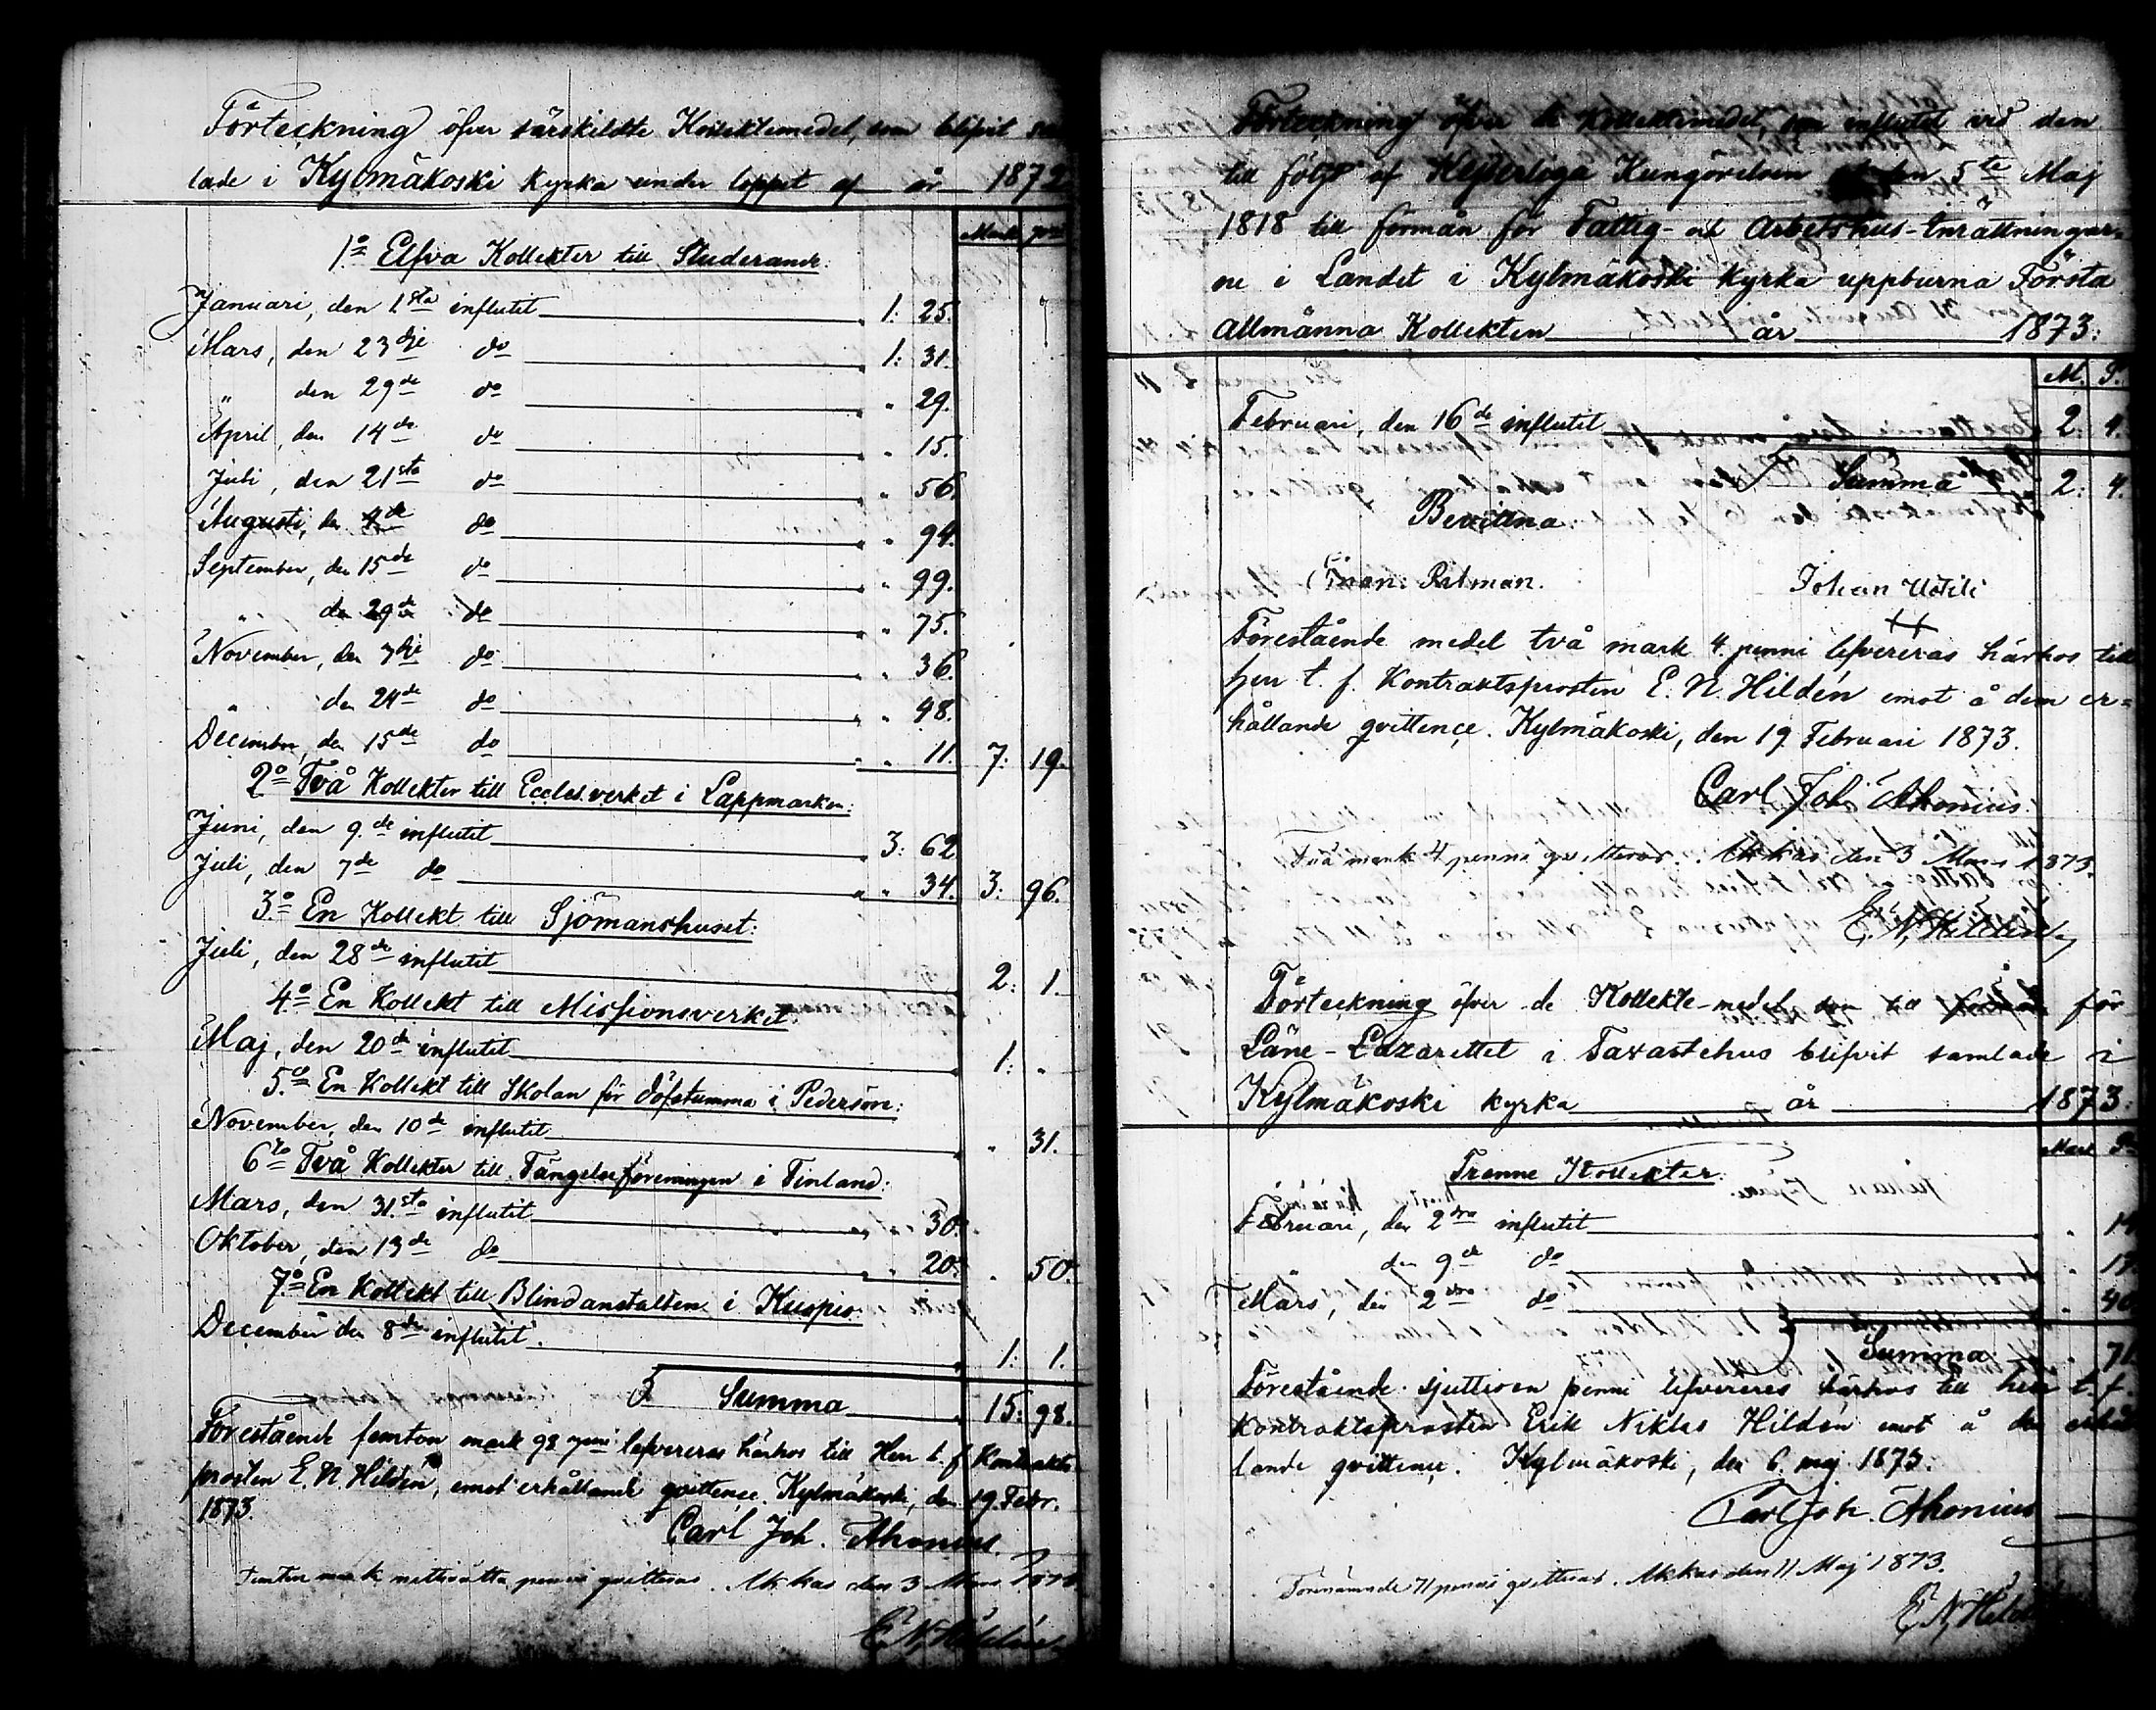 Förteckning öfver särskildte Kollektemedel, som blifvit sam
lade i Kylmäkoski kyrka under loppet af år 1872
Mark pni
1:o Elfva Kollekter till Studerande:
Januari, den 1sta influtit 1: 25.
Mars, den 23dje do 1: 31.
" den 29de do " 29.
April, den 14de do " 15.
Juli, den 21sta do " 56.
Augusti, den 4de do " 94.
September, den 15de do " 99.
" den 29de do " 75.
November, den 3dje do " 36.
" den 24de do " 48.
December, den 15de do " 11. 7: 19.
2:o Två Kollekter till Eccles.verket i Lappmarken:
Juni, den 9de influtit 3: 62
Juli, den 7de do " 34. 3: 96.
3:o En Kollekt till Sjömanshuset:
Juli, den 28de influtit 2: 1.
4:o En Kollekt till Missionsverket:
Maj, den 20de influtit 1: "
5:o En Kollekt till Skolan för döfstumma i Pedersöre:
November, den 10de influtit " 31.
6:o Två Kollekter till Fängelseföreningen i Finland:
Mars, den 31sta influtit " 30.
Oktober, den 13de do " 20. " 50.
7:o En Kollekt till Blindanstalten i Kuopio:
December den 8de influtit 1: 1.
Summa 15: 98.
Förestående femton mark 98 pni lefvereras härhos till Herr t. f. Kontrakts
prosten E. N. Hildén, emot erhållande qvittençe. Kylmäkoski, den 19 Febr.
1873.
Carl Joh. Ahonius.
Femton mark nittioåtta penni qvitteras. Akkas den 3 Mars 1873
E. N. Hildén
Förteckning öfver de Kollektemedel, som influtit vid den
till följe af Kejserliga Kungörelsen af den 5te Maj
1818 till förmån för Fattig- och Arbetshus-Inrättningar=
ne i Landet i Kylmäkoski kyrka uppburna Första
allmänna Kollekten år 1873:
M. P.
Februari, den 16de influtit 2: 4.
Summa 2: 4.
Bevittna:
Palman. Johan Uotila
Förestående medel två mark 4 penni lefvereras härhos till
herr t. f. Kontraktsprosten E. N. Hildén emot å dem er=
hållande qvittençe. Kylmäkoski, den 19 Februari 1873.
Carl Joh. Ahonius.
Två mark 4 penni qvitteras. Akkas den 3 Mars 1873.
E. N. Hildén
Förteckning öfver de Kollekte-medel som till för
Läne-Lazarettet i Tavastehus blifvit samlade i
Kylmäkoski kyrka år 1873:
Mark P.
Trenne Kollekter:
Februari, den 2dra influtit "
den 9de do "
Mars, den 2dra do " 40
Summa " 71.
Förestående sjuttioen penni lefvereres härhos till herr t. f.
Kontraktsprosten Erik Niklas Hildén emot å dem erhål
lande qvittençe. Kylmäkoski, den 6. maj 1873.
Carl Joh. Ahonius
Förenämnde 71 penni qvitteras. Akkas den 11 Maj 1873.
E. N. Hildén